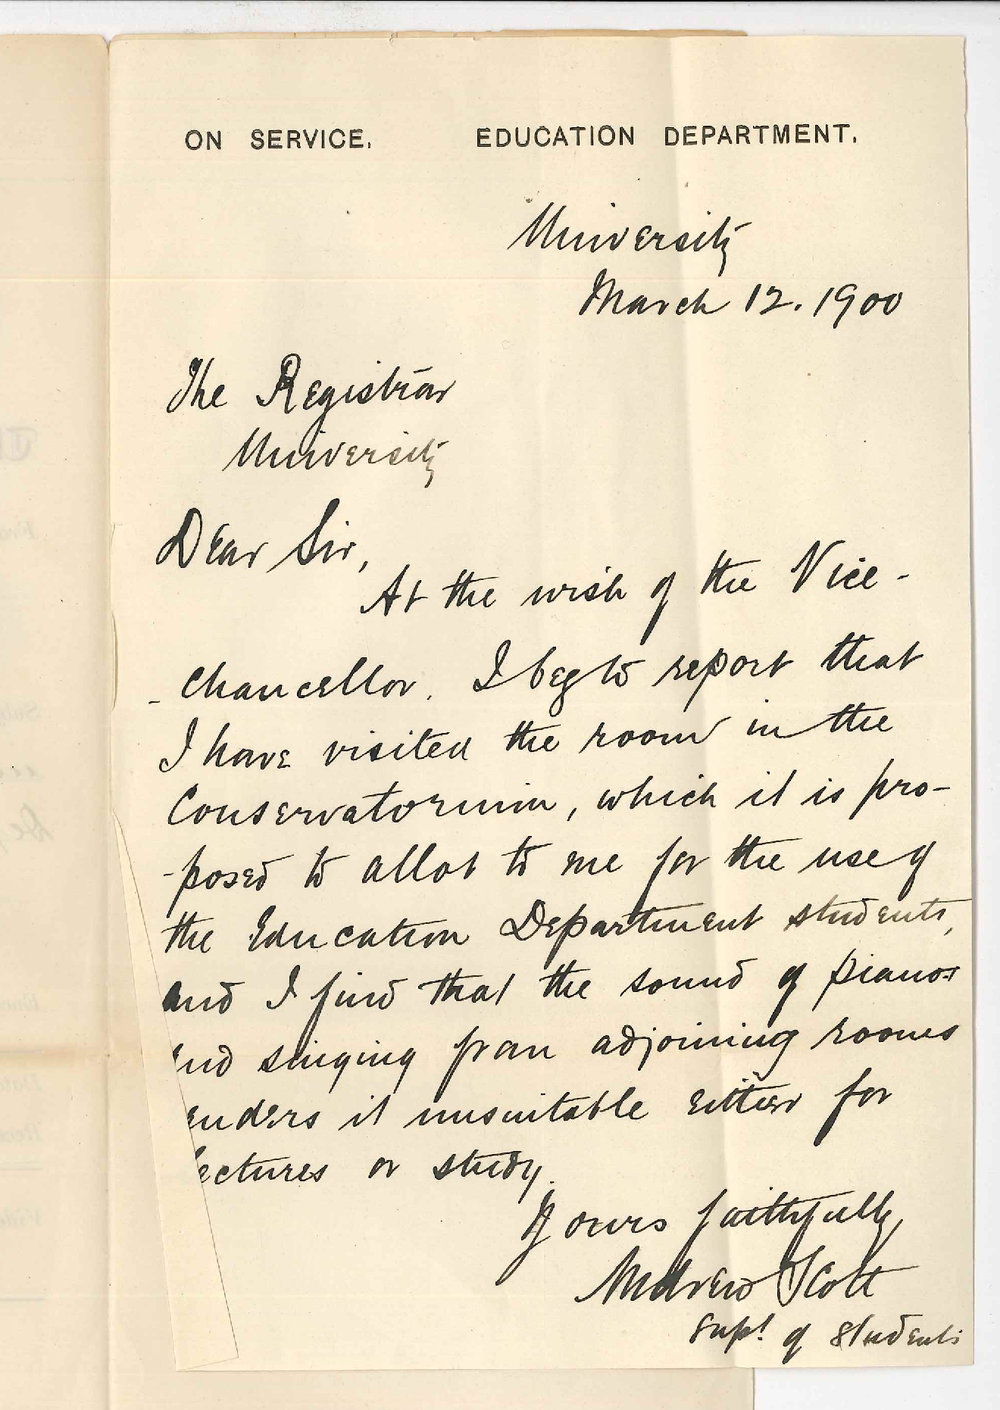 ON SERVICE. EDUCATION DEPARTMENT.
University
March 12. 1900
The Registrar
University
Dear Sir,
At the wish of the Vice-
-Chancellor. I beg to report that
I have visited the room in the
Conservatorium, which it is pro-
-posed to allot to me for the use of
the Education Department students,
and I find that the sound of pianos
and singing from adjoining rooms
renders it unsuitable either for
lectures or study.
Yours faithfully,
Andrew Scott
Supt. of Students